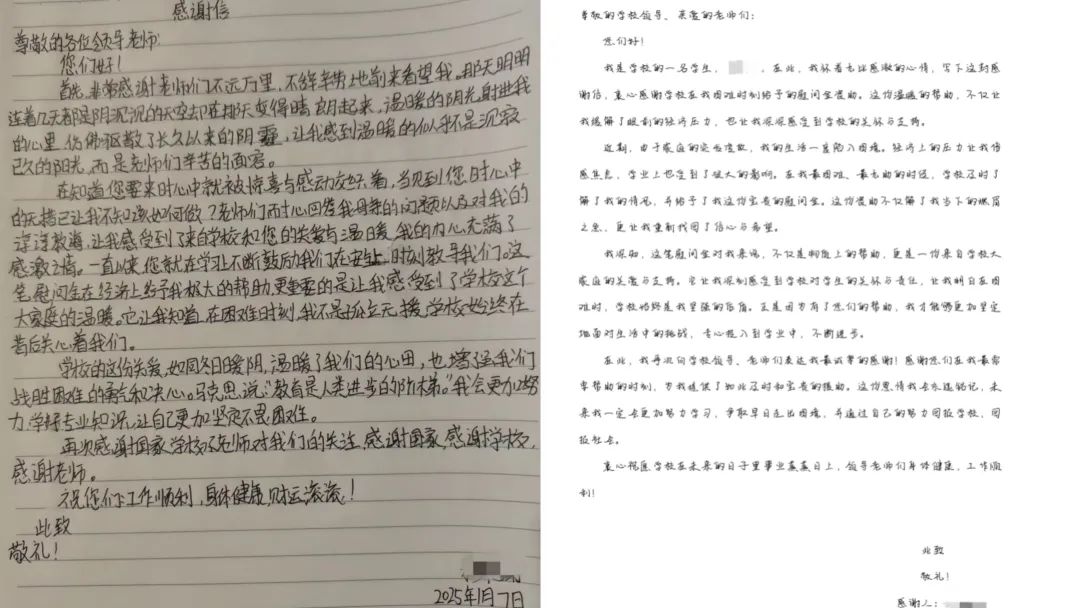 感谢信
尊敬的各位领导老师:
您们好!
首先,非常感谢老师们不远万里,不辞辛劳地前来看望我。那天明明
连着几天都是阴沉沉的天空却在那天变得晴朗起来,温暖的阳光射进我
的心里,仿佛驱散了长久以来的阴霾,让我感到温暖的似乎不是沉寂
已久的阳光,而是老师们辛苦的面容。
在知道您要来时心中就被惊喜与感动交织着,当见到您时心中
的无措已让我不知该如何做了老师们耐心回答我母亲的问题以及对我的
谆谆教诲,让我感受到了来自学校和您的关爱与温暖,我的内心充满了
感激之情。一直以来,您就在学习上不断鼓励我们,在安全上,时刻教导我们。这
笔慰问金在经济上给予我极大的帮助,更重要的是让我感受到了学校这个
大家庭的温暖。它让我知道,在困难时刻,我不是孤立无援,学校始终在
背后关心着我们。
学校的这份关爱,如同冬日暖阳,温暖了我们的心田,也增强我们
战胜困难的勇气和决心。马克思说:“教育是人类进步的阶梯。”我会更加努
力,学好专业知识,让自己更加坚定不畏困难。
再次感谢国家,学校及老师对我们的关注,感谢国家,感谢学校,
感谢老师。
祝您们:工作顺利,身体健康,财运滚滚!
此致
敬礼!
2025年1月7日
尊敬的学校领导、亲爱的老师们:
您们好!
我是学校的一名学生, ,在此,我怀着无比感激的心情,写下这封感
谢信,衷心感谢学校在我困难时刻给予的慰问金援助。这份温暖的帮助,不仅让
我缓解了眼前的经济压力,也让我深深感受到学校的关怀与支持。
近期,由于家庭的突发变故,我的生活一度陷入困境。经济上的压力让我倍
感焦虑,学业上也受到了很大的影响。在我最困难、最无助的时候,学校及时了
解了我的情况,并给予了我这份宝贵的慰问金。这份援助不仅解了我当下的燃眉
之急,更让我重新找回了信心与希望。
我深知,这笔慰问金对我来说,不仅是物质上的帮助,更是一份来自学校大
家庭的关爱与支持。它让我深刻感受到学校对学生的关怀与责任,让我明白在困
难时,学校始终是我坚强的后盾。正是因为有了您们的帮助,我才能够更加坚定
地面对生活中的挑战,专心投入到学业中,不断进步。
在此,我再次向学校领导、老师们表达我最诚挚的感谢!感谢您们在我最需
要帮助的时刻,为我提供了如此及时和宝贵的援助。这份恩情我会永远铭记,未
来我一定会更加努力学习,争取早日走出困境,并通过自己的努力回报学校,回
报社会。
衷心祝愿学校在未来的日子里事业蒸蒸日上,领导老师们身体健康,工作顺
利!
此致
敬礼!
感谢人: